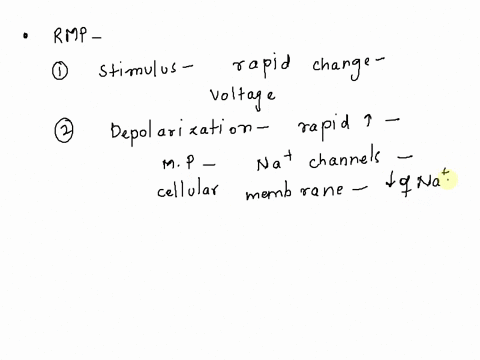 • RMP –
① Stimulus – rapid change –
voltage
② Depolarization – rapid ↑ –
M.P – Na⁺ channels –
cellular membrane – ↓ of Na⁺